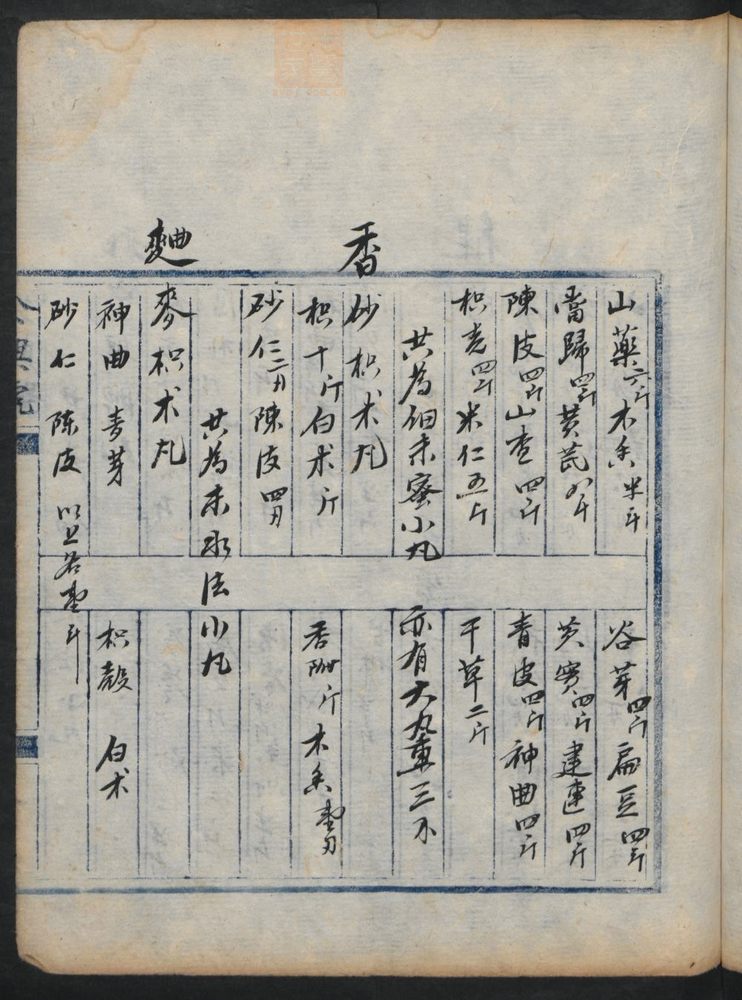 香
麯
山藥六斤 木香半斤 谷芽四斤 扁豆四斤
當歸四斤 黄芪八斤 芡實四斤 建連四斤
陳皮四斤 山查四斤 青皮四斤 神曲四斤
枳壳四斤 米仁五斤 干草二斤
共為細末蜜小丸 亦有大丸重三
砂枳术丸
枳十斤 白术斤 香附斤 木香
砂仁二刃 陳皮四刃
共為末水法小丸
麥枳术丸
神曲 麥芽 枳殻 白术
砂仁 陳皮 以上各壹斤